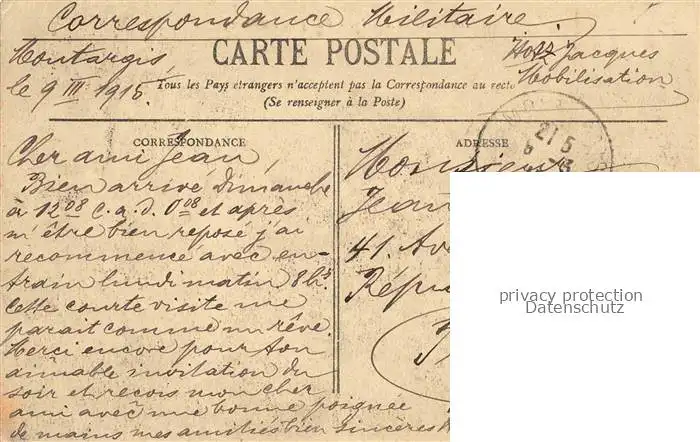 Correspondance Militaire.
Montargis,
le 9 III 1915.
CARTE POSTALE
Hotz Jacques
Mobilisation
Tous les Pays étrangers n'acceptent pas la Correspondance au recto
(Se renseigner à la Poste)
CORRESPONDANCE
Cher ami Jean,
Bien arrivé dimanche
à 12 08 c. a. d. 0 08 et après
m'être bien reposé j'ai
recommencé avec en-
train lundi matin 8 hs.
Cette courte visite me
parait comme un rêve.
Merci encore pour ton
aimable invitation du
soir et reçois mon cher
ami avec une bonne poignée
de mains mes amitiés bien sincères
ADRESSE
21 5
Monsieur
Jean
41. Ave
Répu
privacy protection
Datenschutz